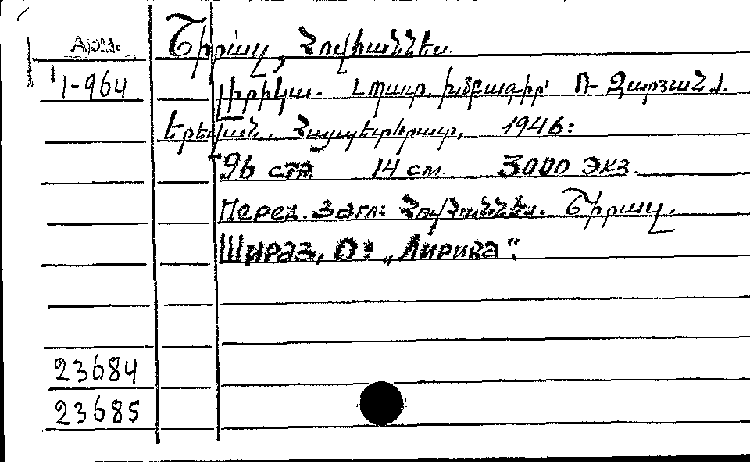 Арм.
Շիրազ, Հովհաննես.
1-964
Լիրիկա. Պատ. խմբագիր՝ Ռ. Զարյան).
Երևան. Հայպետհրատ, 1946:
96 стр. 14 см. 3000 экз.
Перед. загл: Հովհաննես. Շիրազ.
Шираз, О: "Лирика".
23684
23685